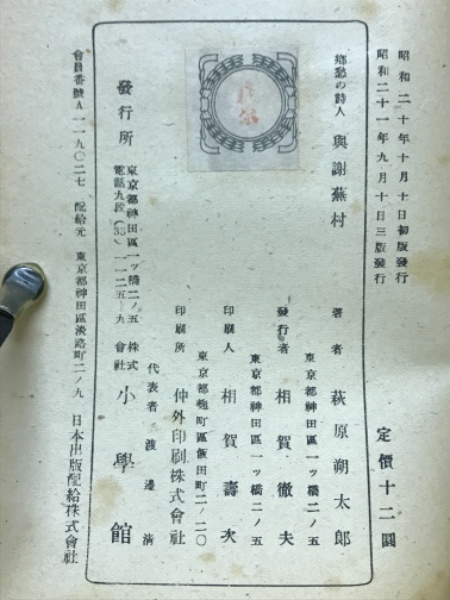 昭和二十年十月十日初版發行
昭和二十一年九月十日三版發行
定價十二圓
鄕愁の詩人 與謝蕪村
著者 萩原朔太郎
東京都神田區一ッ橋二ノ五
發行者 相賀徹夫
東京都神田區一ッ橋二ノ五
印刷人 相賀壽次
東京都麹町區飯田町二ノ二〇
印刷所 仲外印刷株式會社
代表者 渡邊清
發行所 東京都神田區一ッ橋二ノ五 株式會社 小學館
電話九段(33)一一二五・九
會員番號A一一九〇二七 配給元 東京都神田區淡路町二ノ九 日本出版配給株式會社